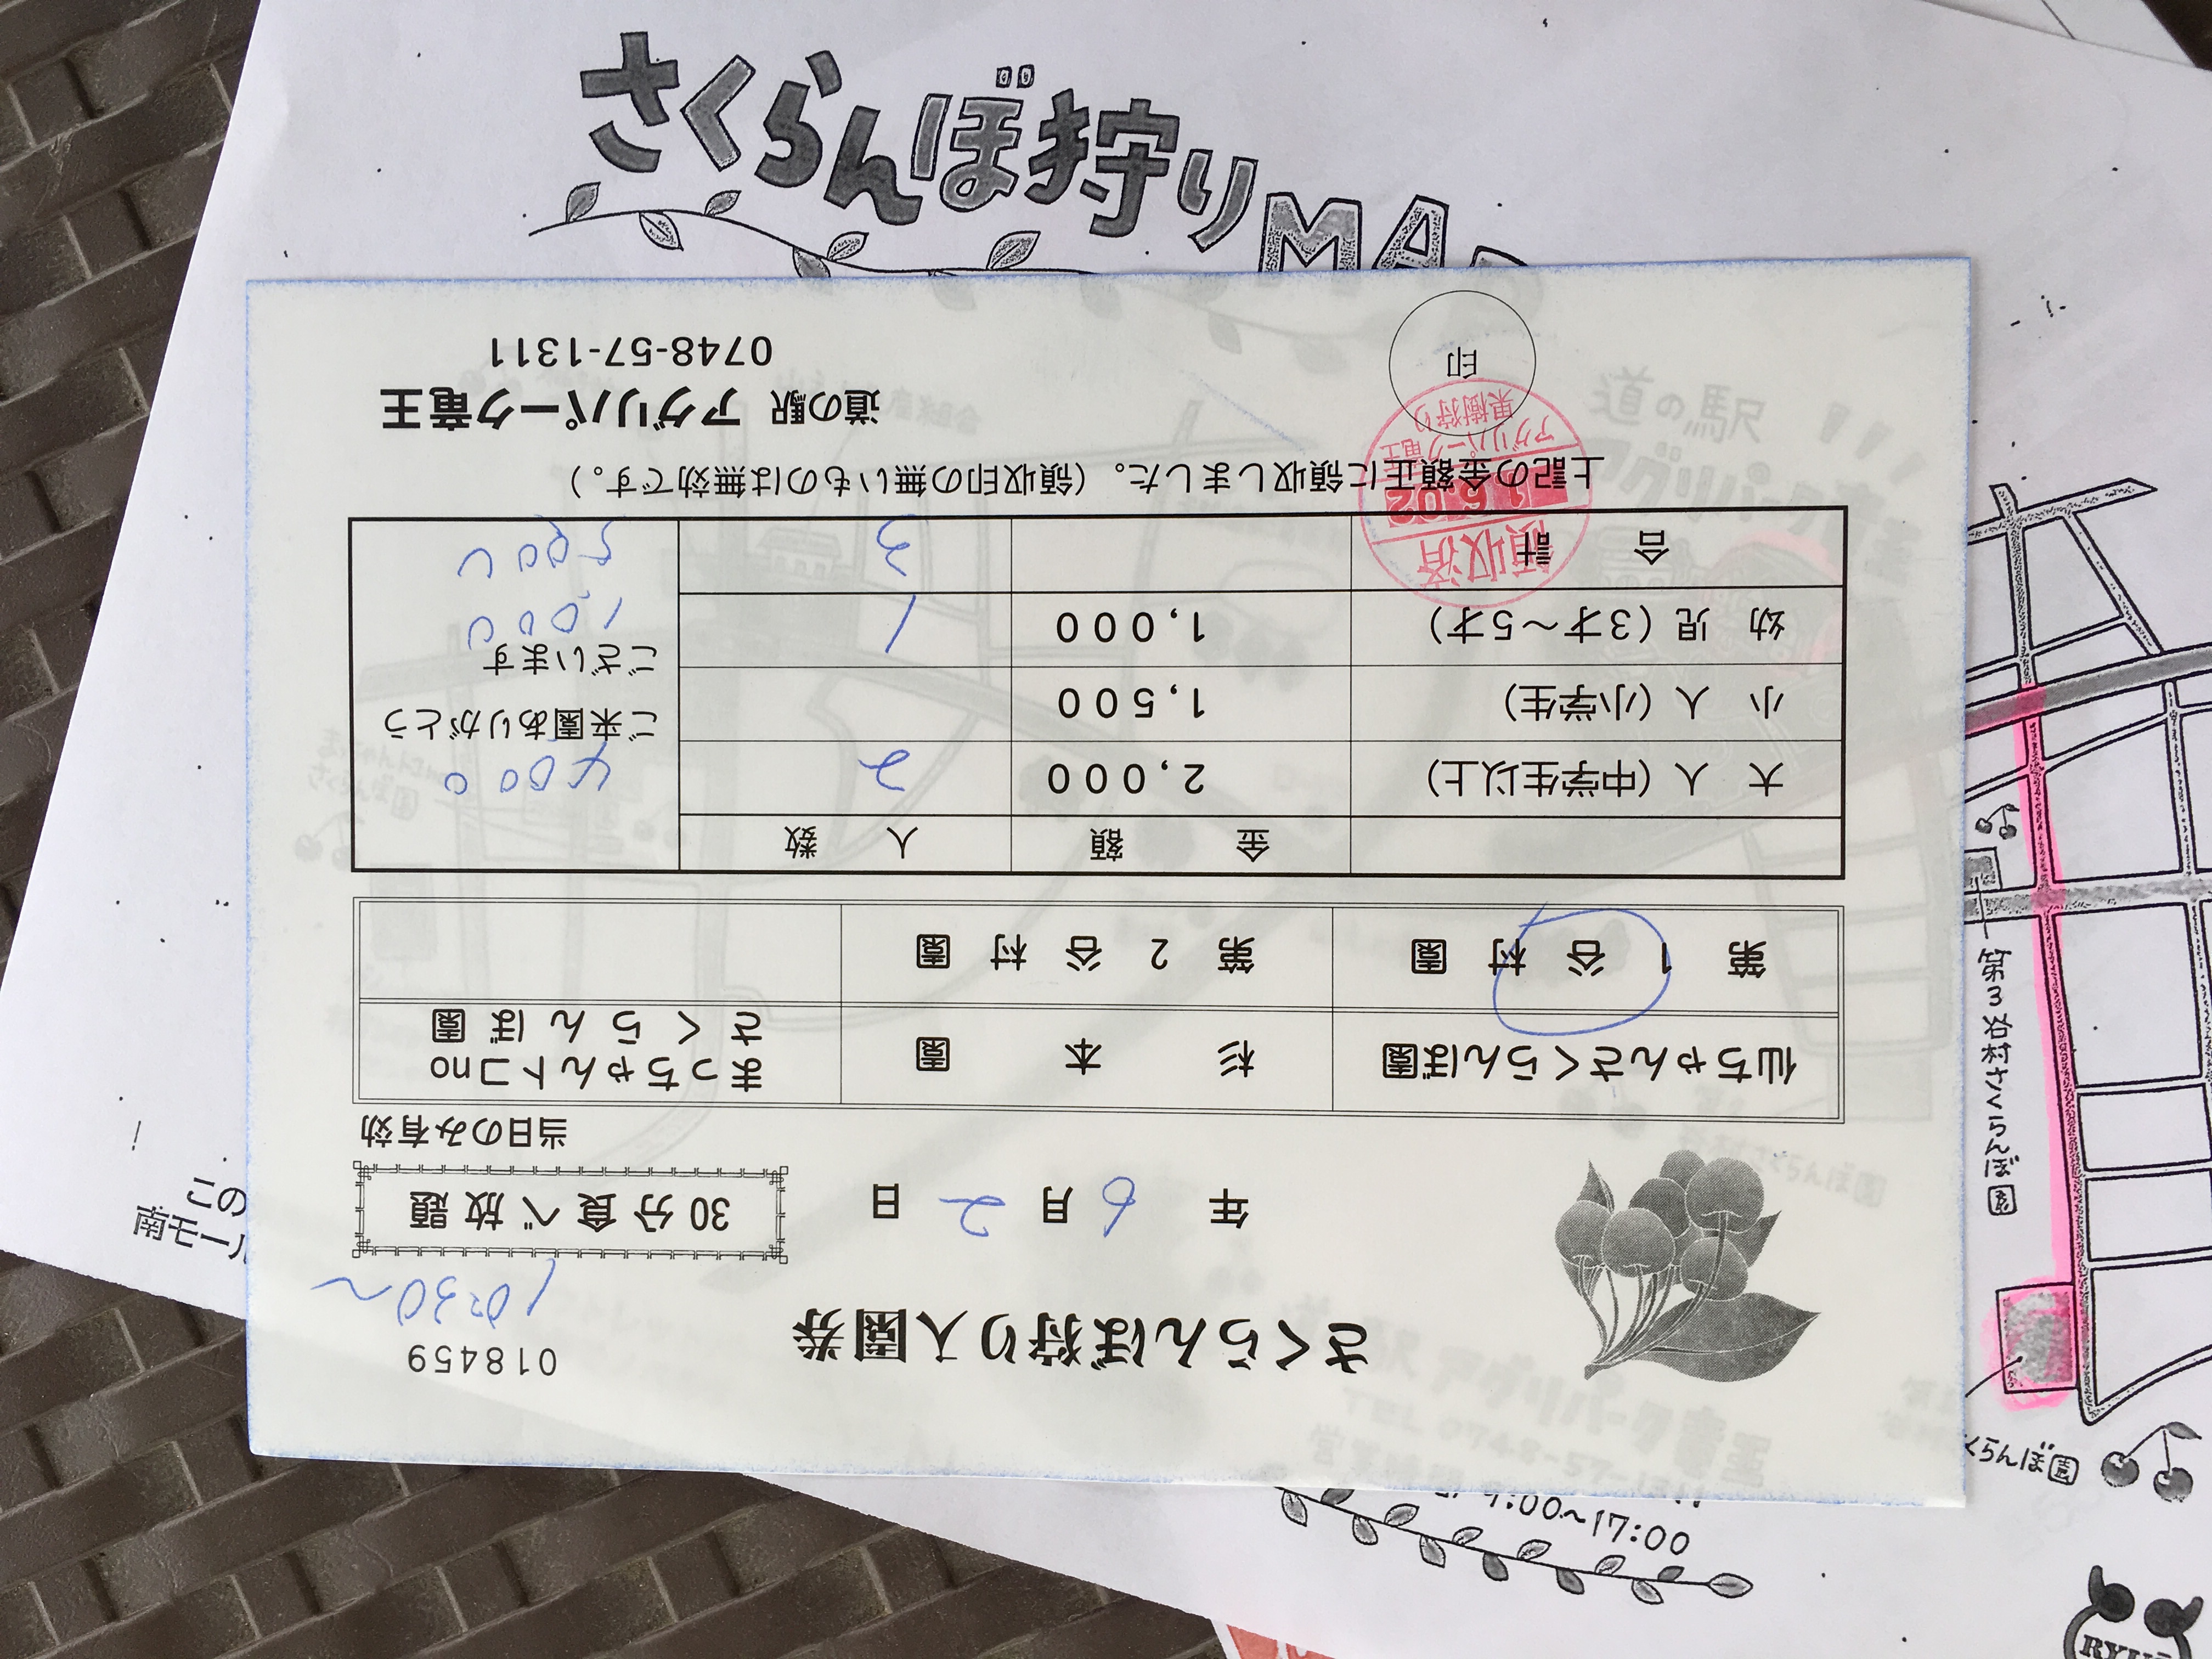 さくらんぼ狩りMAP
018459
さくらんぼ狩り入園券
10:30〜
年 6月 2日
30分食べ放題
当日のみ有効
仙ちゃんさくらんぼ園 杉本園 まっちゃんトコno
さくらんぼ園
第1谷村園 第2谷村園
金額 人数
大人(中学生以上) 2,000 2 4000
ご来園ありがとう
小人(小学生) 1,500
ございます
幼児(3才〜5才) 1,000 1 1,000
合計 3 5000
上記の金額正に領収しました。(領収印の無いものは無効です。)
領収済
16.02
アグリパーク竜王
果樹狩り
印
道の駅 アグリパーク竜王
0748-57-1311
道の駅
アグリパーク竜王
第3谷村さくらんぼ園
くらんぼ園
この
南モール
道の駅 アグリパーク竜王
TEL 0748-57-1311
営業時間 9:00〜17:00